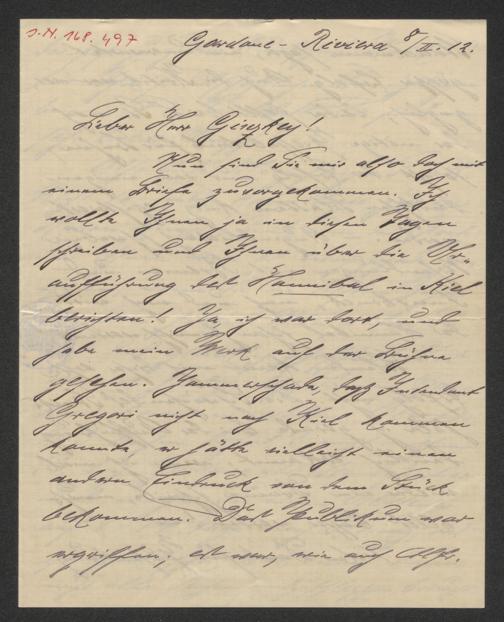 J.N. 168.497
Gardone-Riviera 8/II. 12.
Lieber Herr Ginzkey!
Nun sind Sie mir also doch mit
einem Briefe zuvorgekommen. Ich
wollte Ihnen ja in diesen Tagen
schreiben und Ihnen über die Ur-
aufführung des Hannibal in Kiel
berichten! Ja, ich war dort, und
habe mein Werk auf der Bühne
gesehen. Jammerschade, daß Intendant
Gregori nicht nach Kiel kommen
konnte er hätte vielleicht einen
andern Eindruck von dem Stück
bekommen. Das Publikum war
ergriffen; es war, wie auch